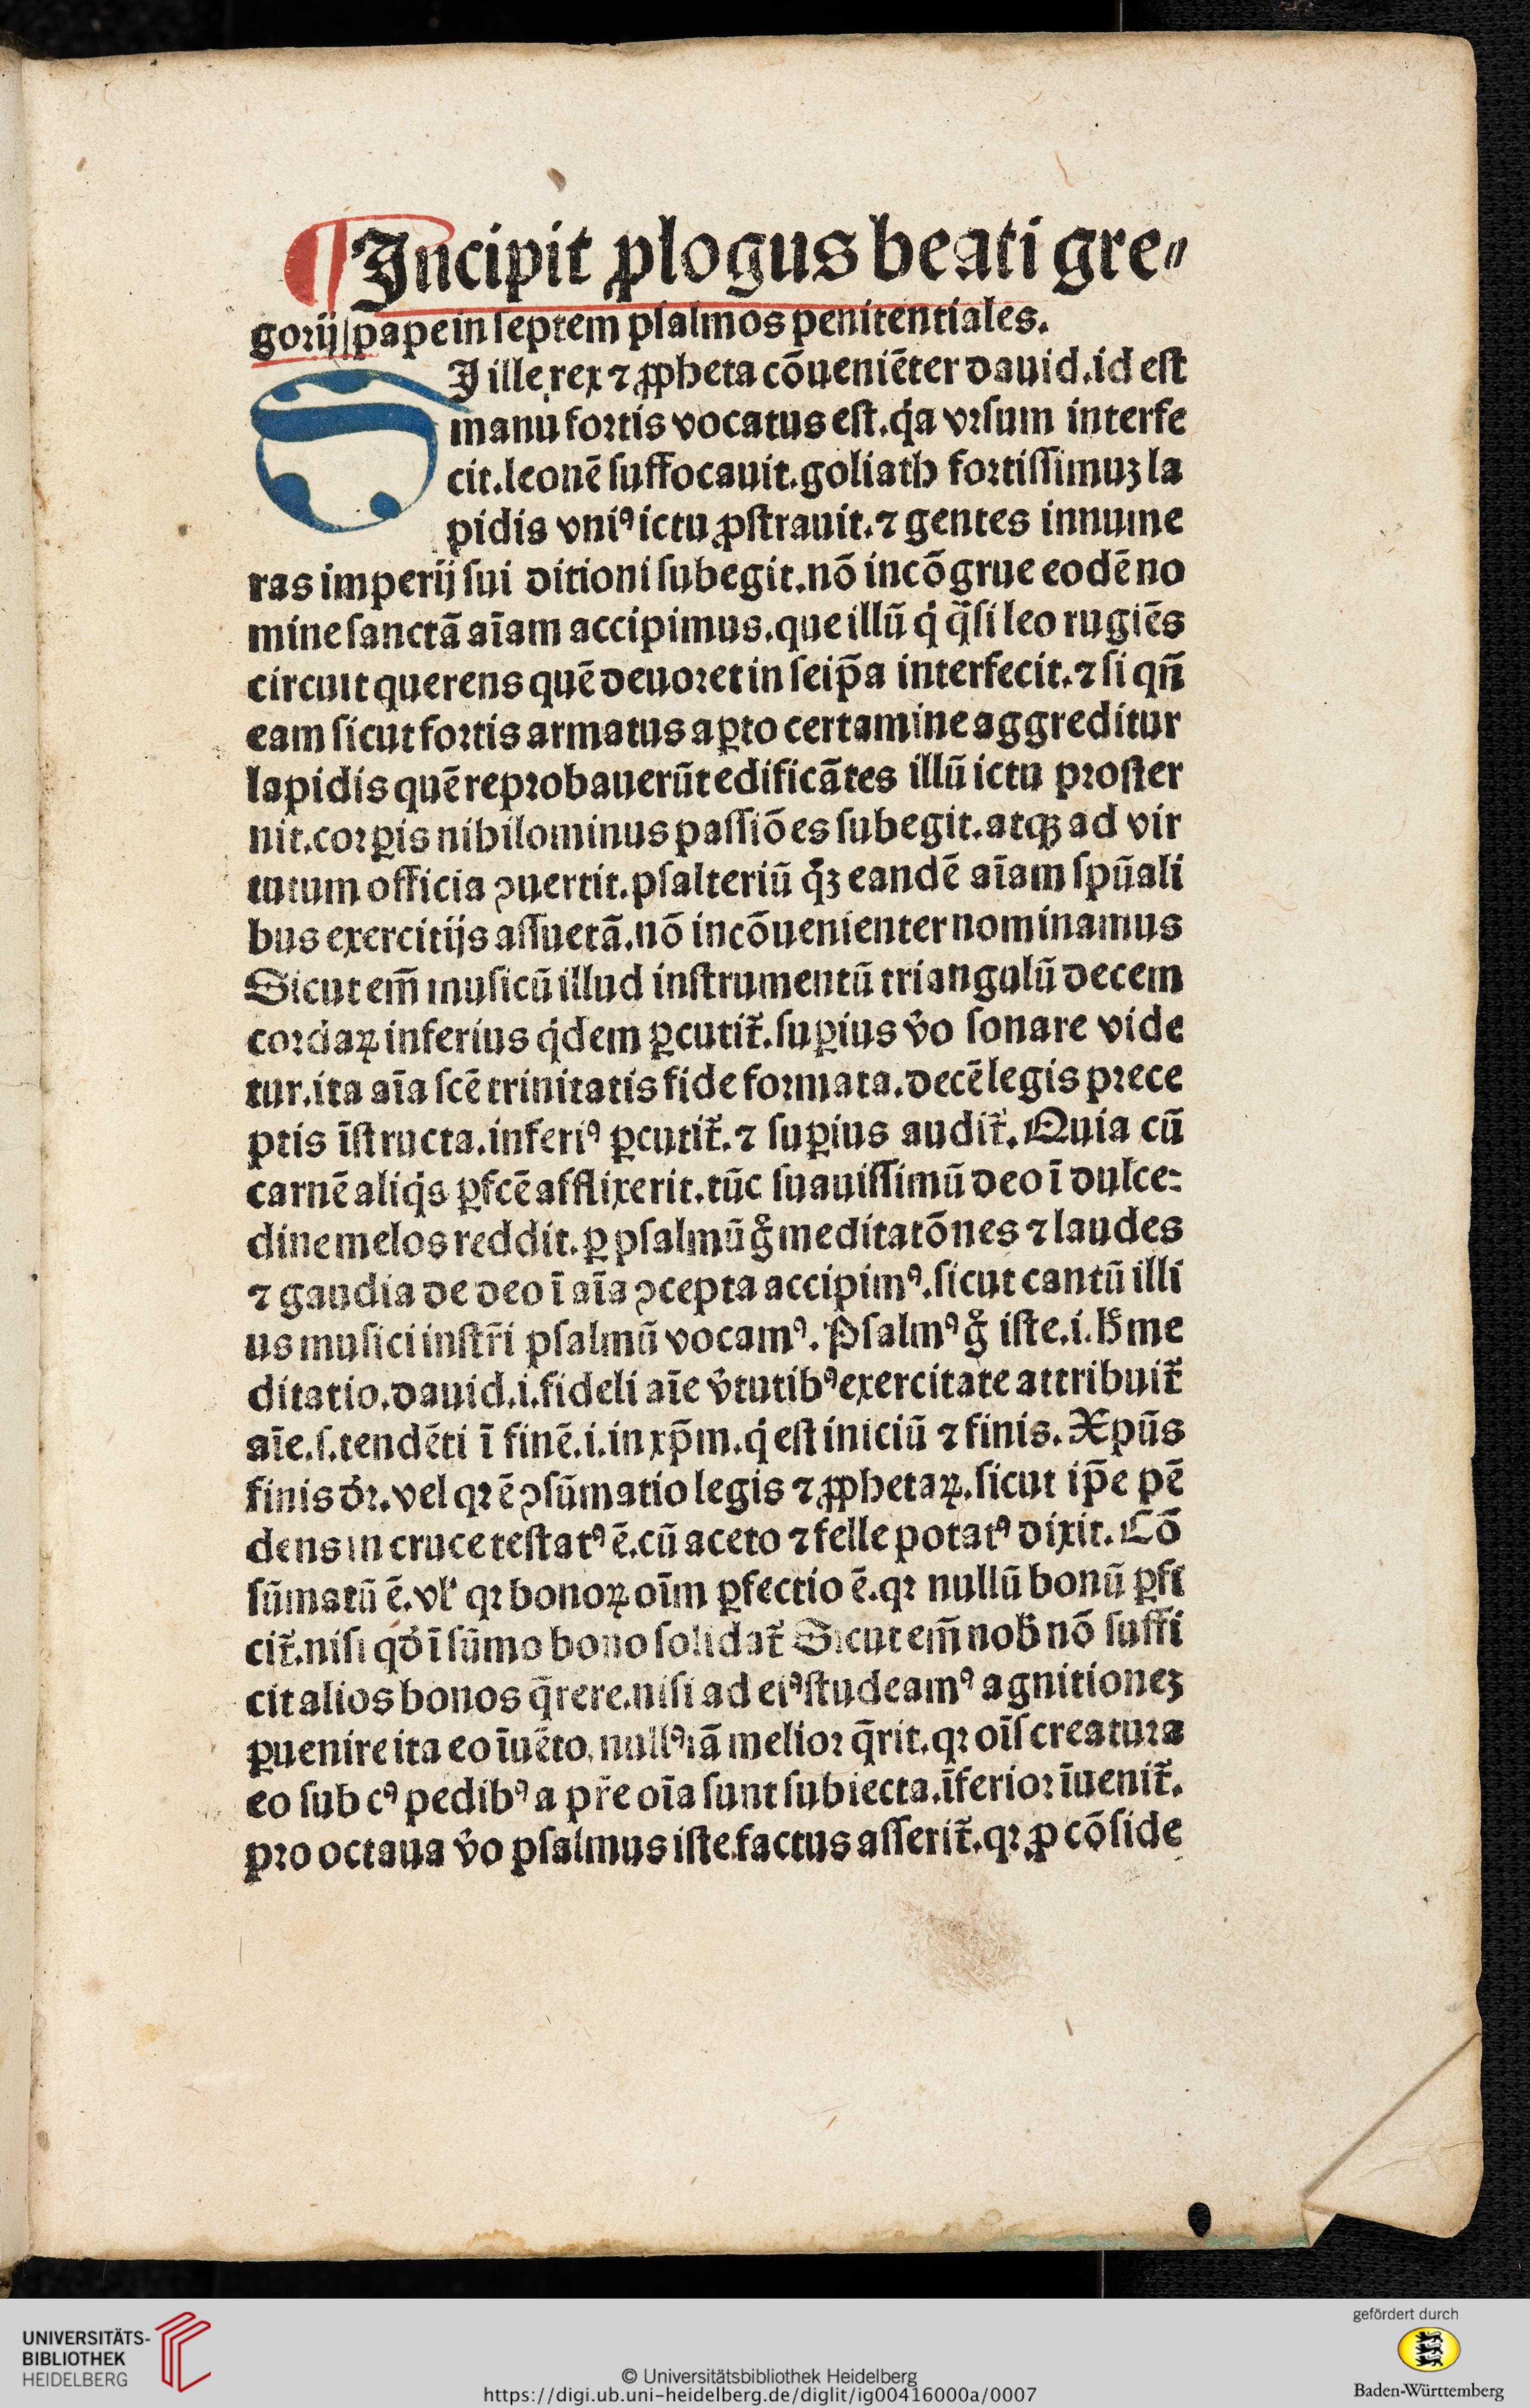 ¶Incipit ꝓlogus beati gre⸗
gorij pape in septem psalmos penitentiales.
SI ille rex ⁊ ꝓpheta cõueniẽter dauid.id est
manu fortis vocatus est.qͥa vrsum interfe
cit.leonẽ suffocauit.goliath fortissimuꝫ la
pidis vniꝰ ictu ꝓstrauit.⁊ gentes innume
ras imperij sui ditioni subegit.nõ incõgrue eodẽ no
mine sanctã aĩam accipimus.que illũ qͥ q̃si leo rugiẽs
circuit querens quẽ deuoret in seip̃a interfecit.⁊ si qñ
eam sicut fortis armatus aꝑto certamine aggreditur
lapidis quẽ reprobauerũt edificãtes illũ ictu proster
nit.corꝑis nihilominus passiões subegit.atqꝫ ad vir
tutum officia ꝯuertit.psalteriũ qͦꝫ eandẽ aĩam spũali
bus exercitijs assuetã.nõ incõuenienter nominamus
Sicut em̃ musicũ illud instrumentũ triangulũ decem
cordaꝝ inferius qͥdem ꝑcutit̃.suꝑius v̾o sonare vide
tur.ita aĩa scẽ trinitatis fide formata.decẽ legis prece
ptis ĩstructa.inferiꝰ ꝑcutit̃.⁊ suꝑius audit̃.Quia cũ
carnẽ aliqͥs ꝑfcẽ afflixerit.tũc suauissimũ deo ĩ dulce⸗
dine melos reddit.ꝑ psalmũ gͦ meditatões ⁊ laudes
⁊ gaudia de deo ĩ aĩa ꝯcepta accipimꝰ.sicut cantũ illi
us musici instr̃i psalmũ vocamꝰ.Psalmꝰ gͦ iste.i.h̾ me
ditatio.dauid.i.fideli aĩe v̾tutibꝰ exercitate attribuit̃
aĩe.s.tendẽti ĩ finẽ.i.in xp̃m.qͥ est iniciũ ⁊ finis.Xpũs
finis dr̃.vel qꝛ ẽ ꝯsũmatio legis ⁊ ꝓphetaꝝ.sicut ip̃e pẽ
dens in cruce testatꝰ ẽ.cũ aceto ⁊ felle potatꝰ dixit.Cõ
sũmatũ ẽ.vl̾ qꝛ bonoꝝ oĩm ꝑfectio ẽ.qꝛ nullũ bonũ ꝑfi
cit̃.nisi qd̾ ĩ sũmo bono solidat̃ Sicut em̃ nob̾ nõ suffi
cit alios bonos q̃rere.nisi ad eiꝰ studeamꝰ agnitioneꝫ
ꝑuenire ita eo ĩuẽto.nullꝰ iã melior q̃rit.qꝛ oĩs creatura
eo sub cꝰ pedibꝰ a pr̃e oĩa sunt subiecta.ĩferior ĩuenit̃.
pro octaua v̾o psalmus iste factus asserit̃.qꝛ ꝓ cõside
UNIVERSITÄTS-
BIBLIOTHEK
HEIDELBERG
© Universitätsbibliothek Heidelberg
https://digi.ub.uni-heidelberg.de/diglit/ig00416000a/0007
gefördert durch
Baden-Württemberg